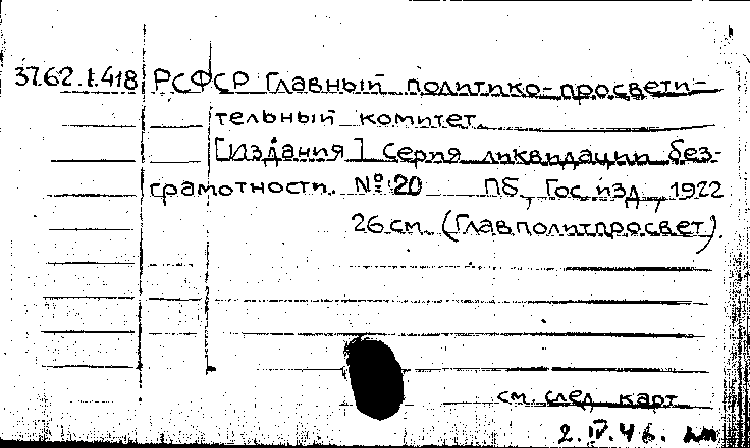 37.62.1.418 РСФСР Главный политико-просвети-
тельный комитет.
[Издания] Серия ликвидации без-
грамотности. №20 Пб, Гос. изд, 1922
26 см. (Главполитпросвет).
см. след. карт
2.IV.46.